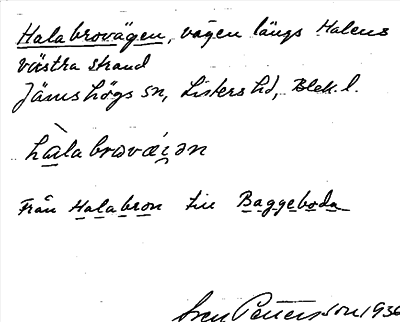 Halabrovägen, vägen längs Halens
västra strand
Jämshögs sn, Listers hd, Blek. l.
hàlabrovǽi̯ən
Från Halabron till Baggeboda
Sven Pettersson 1936